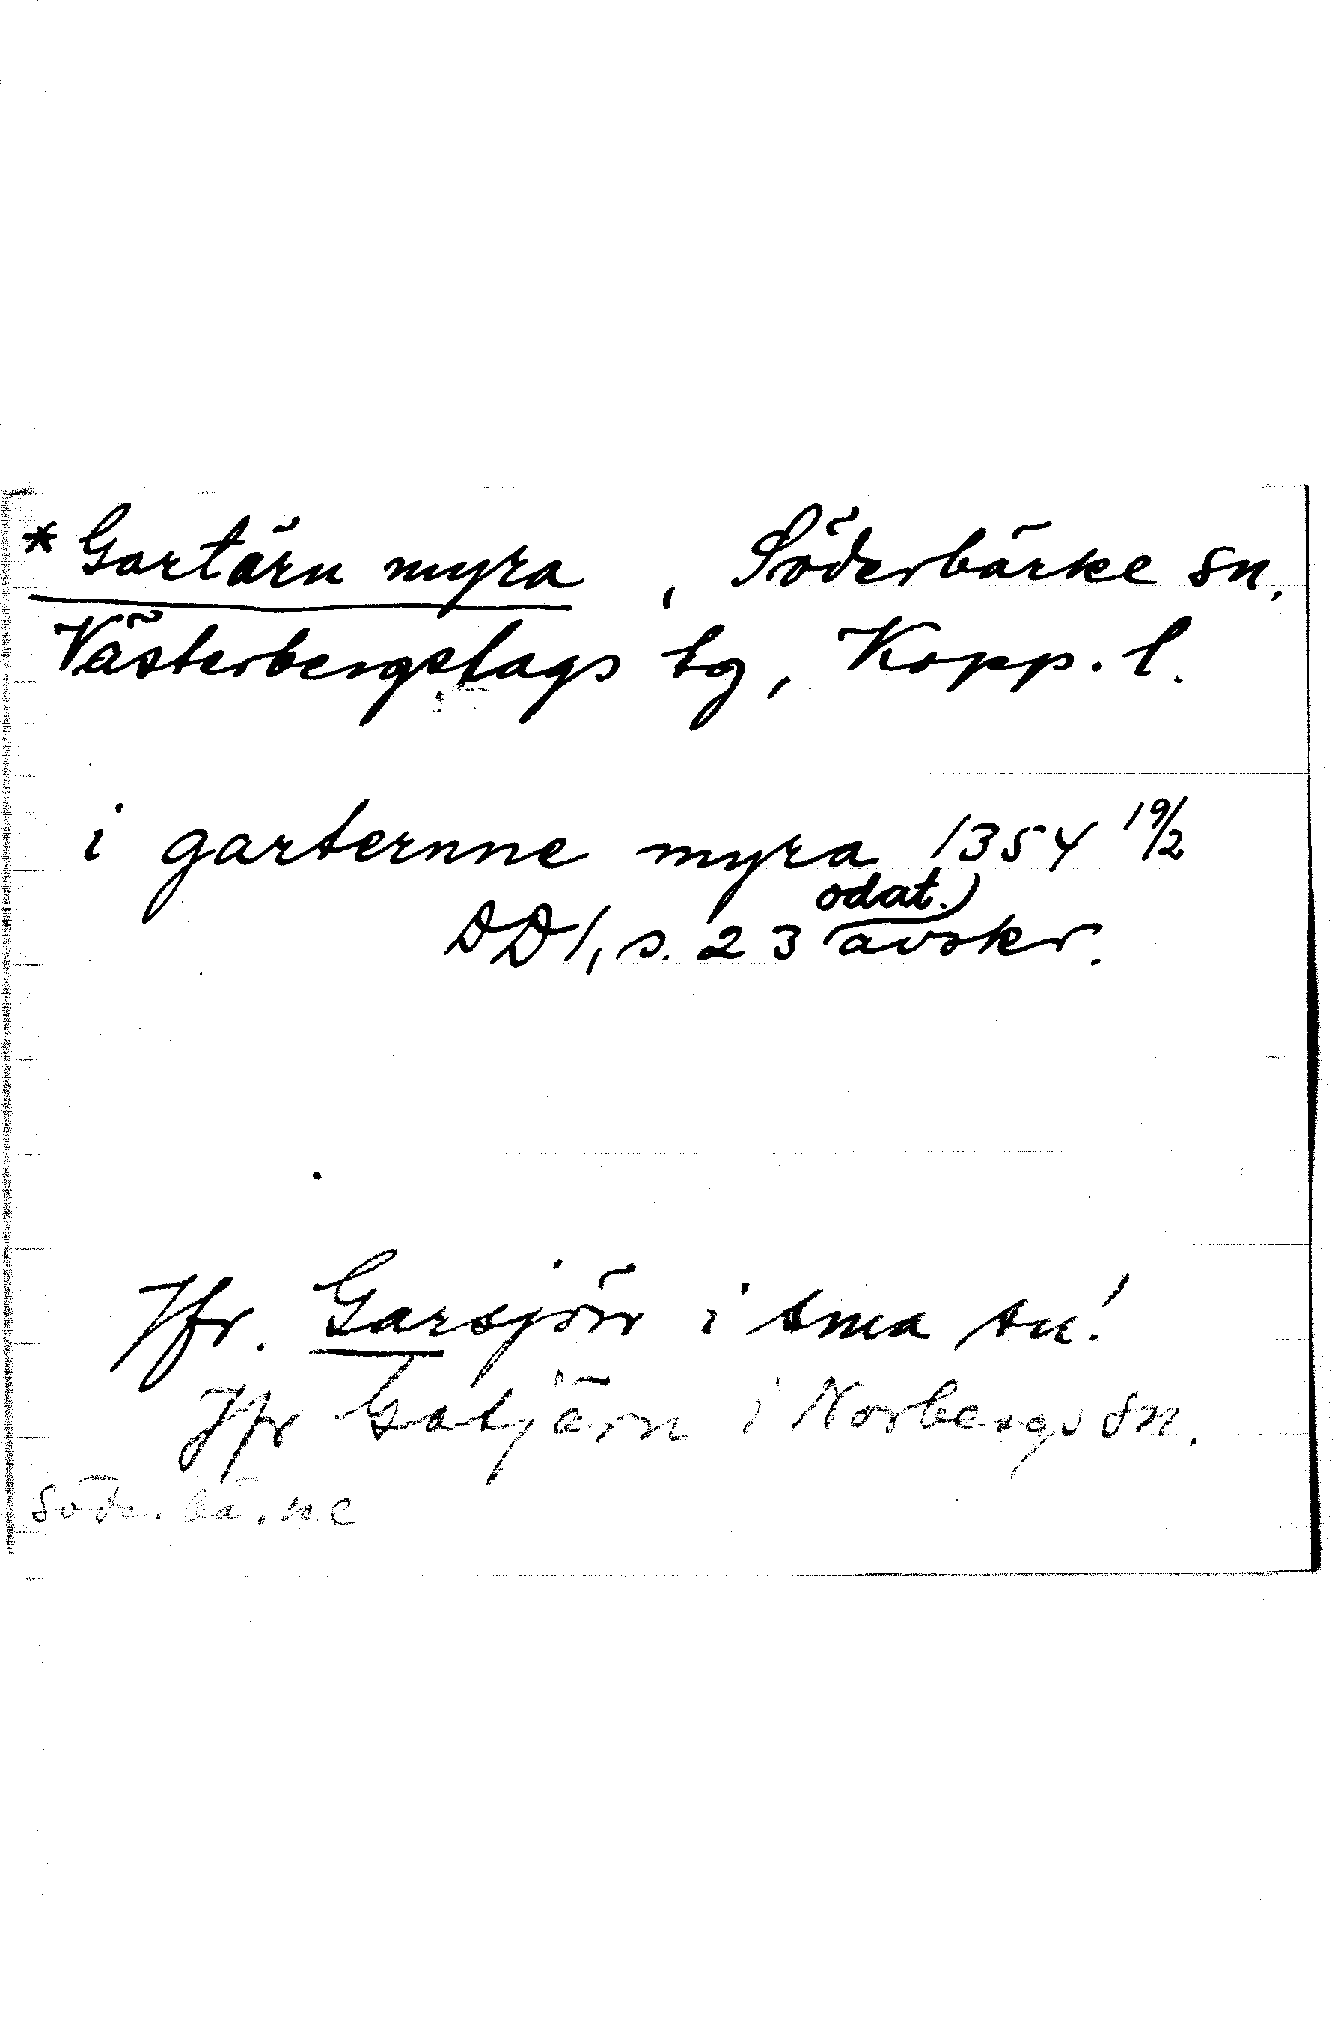 *Gartärn myra, Söderbärke sn,
Västerbergslags bg, Kopp. l.
i garternne myra 1354 19/2
odat.)
DD 1, s. 23 avskr.
Jfr. Garsjön i sma sn!
Jfr Gatjärn i Norbergs sn.